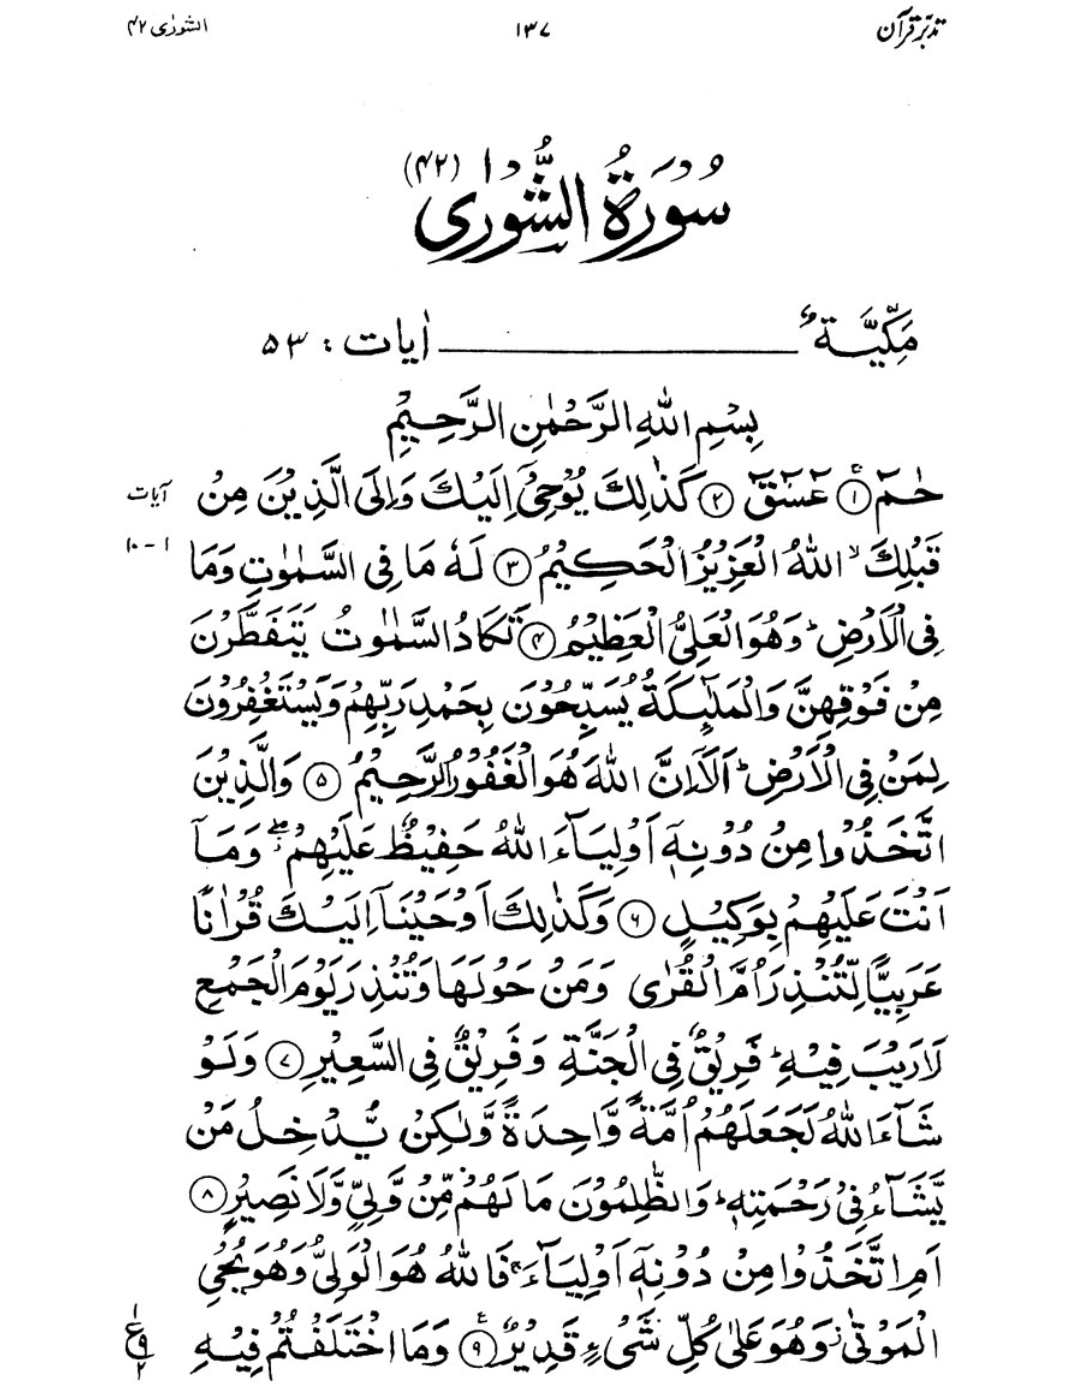 تدبّرِ قرآن ۱۳۷ الشّورٰی ۴۲
سُوۡرَةُ الشُّوۡرٰى (۴۲)
مَكِّيَّةٌ اٰيات : ۵۳
بِسۡمِ اللهِ الرَّحۡمٰنِ الرَّحِيۡمِ
حٰمٓ ۚ ① عٓسٓقٓ ② كَذٰلِكَ يُوۡحِىۡۤ اِلَيۡكَ وَاِلَى الَّذِيۡنَ مِنۡ آیات
قَبۡلِكَ ۙ اللهُ الۡعَزِيۡزُ الۡحَكِيۡمُ ③ لَهٗ مَا فِى السَّمٰوٰتِ وَمَا ۱-۱۰
فِى الۡاَرۡضِ ؕ وَهُوَ الۡعَلِىُّ الۡعَظِيۡمُ ④ تَكَادُ السَّمٰوٰتُ يَتَفَطَّرۡنَ
مِنۡ فَوۡقِهِنَّ وَالۡمَلٰٓٮِٕكَةُ يُسَبِّحُوۡنَ بِحَمۡدِ رَبِّهِمۡ وَيَسۡتَغۡفِرُوۡنَ
لِمَنۡ فِى الۡاَرۡضِ ؕ اَلَاۤ اِنَّ اللهَ هُوَ الۡغَفُوۡرُ الرَّحِيۡمُ ⑤ وَالَّذِيۡنَ
اتَّخَذُوۡا مِنۡ دُوۡنِهٖۤ اَوۡلِيَآءَ اللهُ حَفِيۡظٌ عَلَيۡهِمۡ ۖ وَمَاۤ
اَنۡتَ عَلَيۡهِمۡ بِوَكِيۡلٍ ⑥ وَكَذٰلِكَ اَوۡحَيۡنَاۤ اِلَيۡكَ قُرۡاٰنًا
عَرَبِيًّا لِّتُنۡذِرَ اُمَّ الۡقُرٰى وَمَنۡ حَوۡلَهَا وَتُنۡذِرَ يَوۡمَ الۡجَمۡعِ
لَا رَيۡبَ فِيۡهِ ؕ فَرِيۡقٌ فِى الۡجَنَّةِ وَفَرِيۡقٌ فِى السَّعِيۡرِ ⑦ وَلَوۡ
شَآءَ اللهُ لَجَعَلَهُمۡ اُمَّةً وَّاحِدَةً وَّلٰكِنۡ يُّدۡخِلُ مَنۡ
يَّشَآءُ فِىۡ رَحۡمَتِهٖ ؕ وَالظّٰلِمُوۡنَ مَا لَهُمۡ مِّنۡ وَّلِىٍّ وَّلَا نَصِيۡرٍ ⑧
اَمِ اتَّخَذُوۡا مِنۡ دُوۡنِهٖۤ اَوۡلِيَآءَ ۚ فَاللهُ هُوَ الۡوَلِىُّ وَهُوَ يُحۡىِ
الۡمَوۡتٰى وَهُوَ عَلٰى كُلِّ شَىۡءٍ قَدِيۡرٌ ۚ ⑨ وَمَا اخۡتَلَفۡتُمۡ فِيۡهِ ۱ ع ۹ ۲